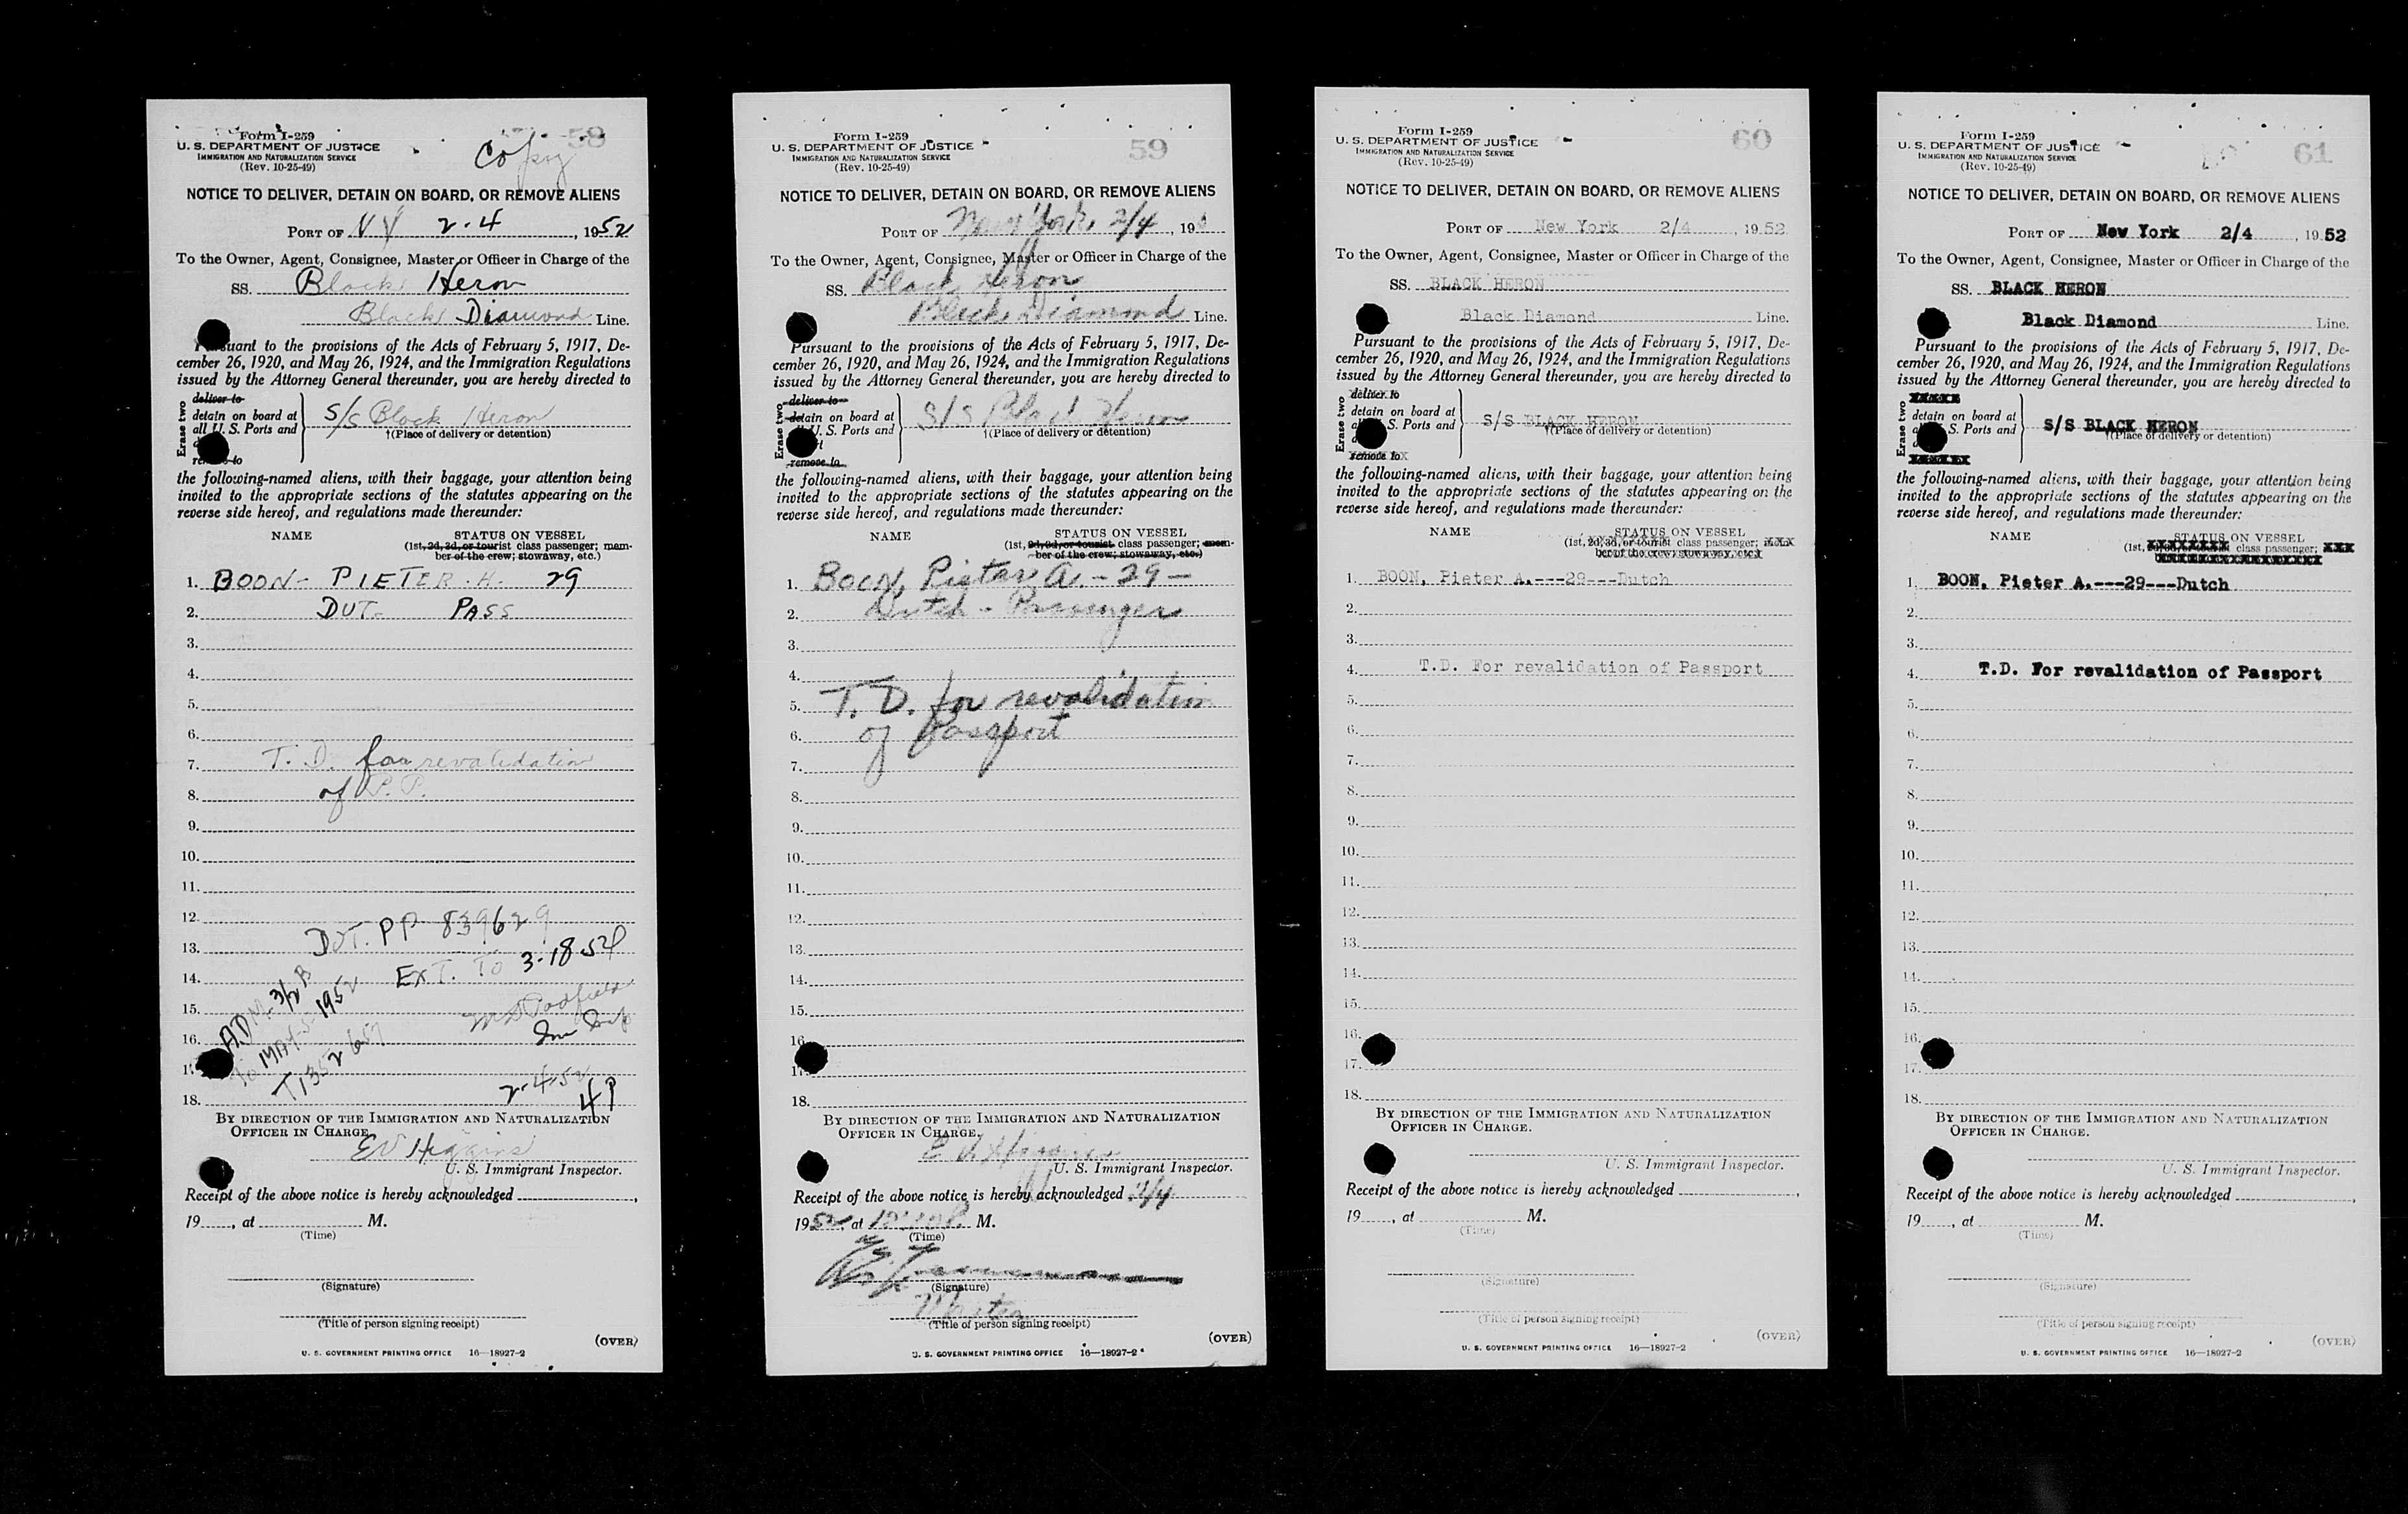 Form I-259
58
U. S. DEPARTMENT OF JUSTICE
Copy
IMMIGRATION AND NATURALIZATION SERVICE
(Rev. 10-25-49)
NOTICE TO DELIVER, DETAIN ON BOARD, OR REMOVE ALIENS
PORT OF NY 2-4, 1952
To the Owner, Agent, Consignee, Master or Officer in Charge of the
SS. Black Heron
Black Diamond Line.
Pursuant to the provisions of the Acts of February 5, 1917, De-
cember 26, 1920, and May 26, 1924, and the Immigration Regulations
issued by the Attorney General thereunder, you are hereby directed to
Erase two
deliver to
detain on board at
all U. S. Ports and
S/S Black Heron
†(Place of delivery or detention)
remove to
the following-named aliens, with their baggage, your attention being
invited to the appropriate sections of the statutes appearing on the
reverse side hereof, and regulations made thereunder:
NAME STATUS ON VESSEL
(1st, 2d, 3d, or tourist class passenger; mem-
ber of the crew; stowaway, etc.)
1. BOON- PIETER. H. 29
2. DUT- PASS
3.
4.
5.
6.
7. T. D. for revalidation
8. of P.P.
9.
10.
11.
12.
13. DUT. PP 839629
14. EXT. TO 3-18-54
15.
16.
ADM. 3/2 B
To MAY-5-1952
T1352657
2-4-52
49
18.
BY DIRECTION OF THE IMMIGRATION AND NATURALIZATION
OFFICER IN CHARGE.
EV Higgins
U. S. Immigrant Inspector.
Receipt of the above notice is hereby acknowledged ,
19 , at M.
(Time)
(Signature)
(Title of person signing receipt)
(OVER)
U. S. GOVERNMENT PRINTING OFFICE 16—18927-2
Form I-259
59
U. S. DEPARTMENT OF JUSTICE
IMMIGRATION AND NATURALIZATION SERVICE
(Rev. 10-25-49)
NOTICE TO DELIVER, DETAIN ON BOARD, OR REMOVE ALIENS
PORT OF New York, 2/4, 195
To the Owner, Agent, Consignee, Master or Officer in Charge of the
SS. Black Heron
Black Diamond Line.
Pursuant to the provisions of the Acts of February 5, 1917, De-
cember 26, 1920, and May 26, 1924, and the Immigration Regulations
issued by the Attorney General thereunder, you are hereby directed to
Erase two
deliver to
detain on board at
all U. S. Ports and
S/S Black Heron
†(Place of delivery or detention)
remove to
the following-named aliens, with their baggage, your attention being
invited to the appropriate sections of the statutes appearing on the
reverse side hereof, and regulations made thereunder:
NAME STATUS ON VESSEL
(1st, 2d, 3d, or tourist class passenger; mem-
ber of the crew; stowaway, etc.)
1. BOON, Pieter A. - 29 -
2. Dutch - Passenger
3.
4.
5. T. D. for revalidation
6. of Passport
7.
8.
9.
10.
11.
12.
13.
14.
15.
16.
17.
18.
BY DIRECTION OF THE IMMIGRATION AND NATURALIZATION
OFFICER IN CHARGE.
E V Higgins
U. S. Immigrant Inspector.
Receipt of the above notice is hereby acknowledged 2/4
1952, at M.
(Time)
(Signature)
Master
(Title of person signing receipt)
(OVER)
U. S. GOVERNMENT PRINTING OFFICE 16—18927-2
Form I-259
60
U. S. DEPARTMENT OF JUSTICE
IMMIGRATION AND NATURALIZATION SERVICE
(Rev. 10-25-49)
NOTICE TO DELIVER, DETAIN ON BOARD, OR REMOVE ALIENS
PORT OF New York 2/4, 1952
To the Owner, Agent, Consignee, Master or Officer in Charge of the
SS. BLACK HERON
Black Diamond Line.
Pursuant to the provisions of the Acts of February 5, 1917, De-
cember 26, 1920, and May 26, 1924, and the Immigration Regulations
issued by the Attorney General thereunder, you are hereby directed to
Erase two
deliver to
detain on board at
S. Ports and
S/S BLACK HERON
†(Place of delivery or detention)
remove to
the following-named aliens, with their baggage, your attention being
invited to the appropriate sections of the statutes appearing on the
reverse side hereof, and regulations made thereunder:
NAME STATUS ON VESSEL
(1st, 2d, 3d, or tourist class passenger; XXX
ber of the crew; stowaway, etc.)
1. BOON, Pieter A.---29---Dutch
2.
3.
4. T.D. For revalidation of Passport
5.
6.
7.
8.
9.
10.
11.
12.
13.
14.
15.
16.
17.
18.
BY DIRECTION OF THE IMMIGRATION AND NATURALIZATION
OFFICER IN CHARGE.
U. S. Immigrant Inspector.
Receipt of the above notice is hereby acknowledged ,
19 , at M.
(Time)
(Signature)
(Title of person signing receipt)
(OVER)
U. S. GOVERNMENT PRINTING OFFICE 16—18927-2
Form I-259
61
U. S. DEPARTMENT OF JUSTICE
IMMIGRATION AND NATURALIZATION SERVICE
(Rev. 10-25-49)
NOTICE TO DELIVER, DETAIN ON BOARD, OR REMOVE ALIENS
PORT OF New York 2/4, 1952
To the Owner, Agent, Consignee, Master or Officer in Charge of the
SS. BLACK HERON
Black Diamond Line.
Pursuant to the provisions of the Acts of February 5, 1917, De-
cember 26, 1920, and May 26, 1924, and the Immigration Regulations
issued by the Attorney General thereunder, you are hereby directed to
Erase two
XXXXX
detain on board at
S. Ports and
S/S BLACK HERON
†(Place of delivery or detention)
XXXXXX
the following-named aliens, with their baggage, your attention being
invited to the appropriate sections of the statutes appearing on the
reverse side hereof, and regulations made thereunder:
NAME STATUS ON VESSEL
(1st, class passenger; XXX
1. BOON, Pieter A.---29---Dutch
2.
3.
4. T.D. For revalidation of Passport
5.
6.
7.
8.
9.
10.
11.
12.
13.
14.
15.
16.
17.
18.
BY DIRECTION OF THE IMMIGRATION AND NATURALIZATION
OFFICER IN CHARGE.
U. S. Immigrant Inspector.
Receipt of the above notice is hereby acknowledged ,
19 , at M.
(Time)
(Signature)
(Title of person signing receipt)
(OVER)
U. S. GOVERNMENT PRINTING OFFICE 16—18927-2